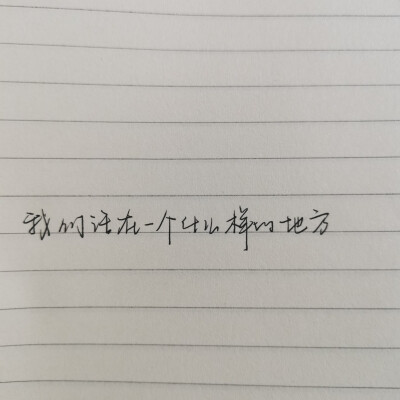 我们活在一个什么样的地方